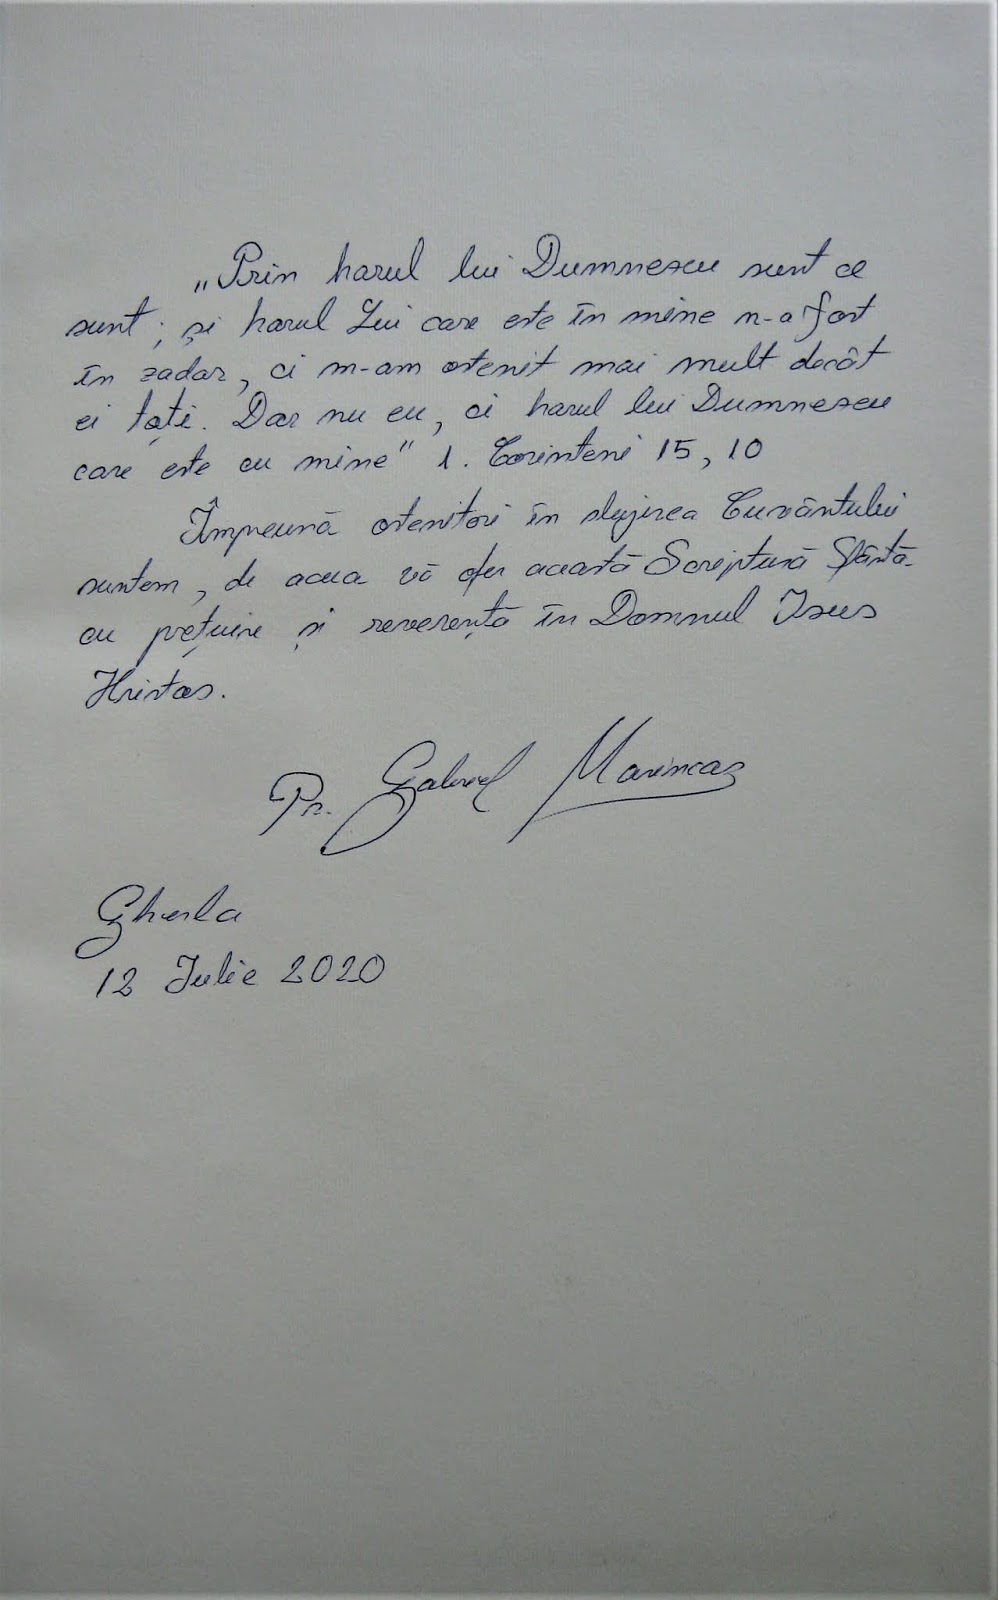 „Prin harul lui Dumnezeu sunt ce
sunt; și harul Lui care este în mine n-a fost
în zadar, ci m-am ostenit mai mult decât
ei toți. Dar nu eu, ci harul lui Dumnezeu
care este cu mine" 1. Corinteni 15, 10
Împreună ostenitori în slujirea Cuvântului
suntem, de aceea vă ofer această Scriptură Sfântă
cu prețuire și reverență în Domnul Isus
Hristos.
Pr. Gabriel Marincaș
Gherla
12 Iulie 2020